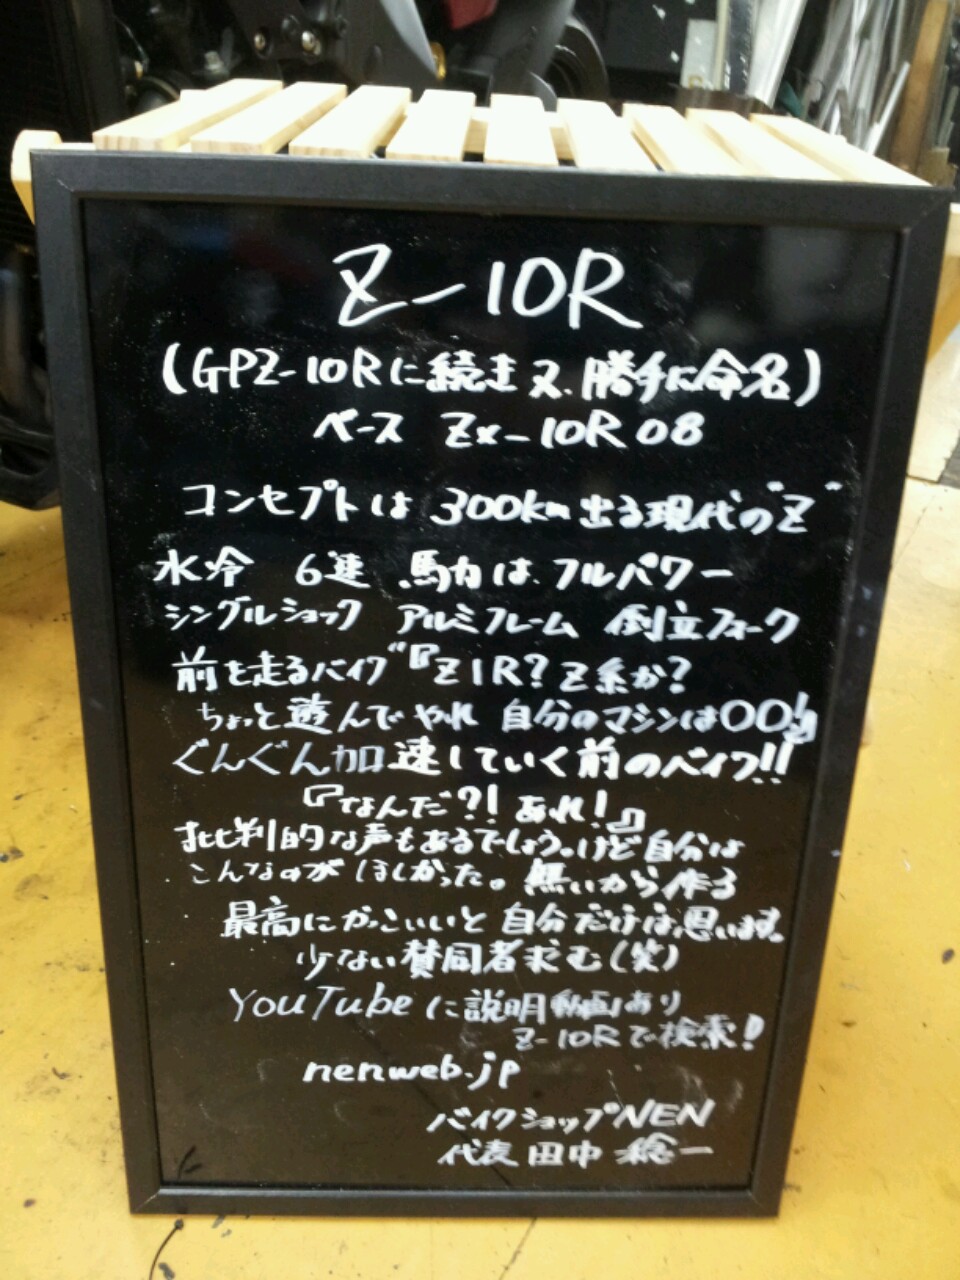 Z-10R
(GPZ-10Rに続き又、勝手に命名)
ベース Zx-10R 08
コンセプトは 300km出る現代の"Z"
水冷 6速 馬力は、フルパワー
シングルショック アルミフレーム 倒立フォーク
前を走るバイク"『Z1R?Z系か?
ちょっと遊んでやれ 自分のマシンは〇〇』
ぐんぐん加速していく前のバイク!!
『なんだ?! あれ!』
批判的な声もあるでしょう。けど自分は
こんなのがほしかった。無いから作る
最高にかっこいいと自分だけは思います。
少ない賛同者求む(笑)
YouTubeに説明動画あり
Z-10Rで検索!
nenweb.jp
バイクショップNEN
代表 田中 稔一